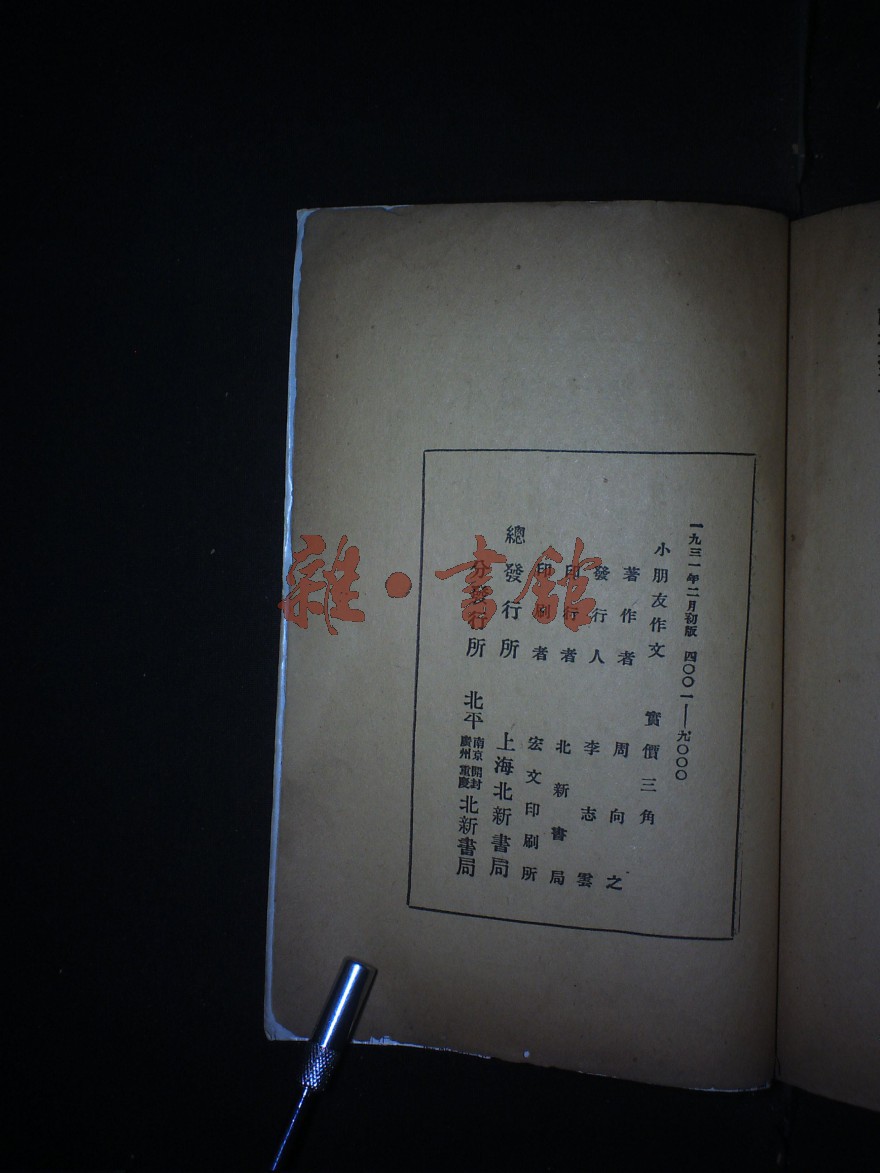 一九三一年二月初版 四〇〇一——九〇〇〇
小朋友作文 實價三角
著作者 周向之
發行人 李志雲
印行者 北新書局
印刷者 宏文印刷所
總發行所 上海北新書局
分發行所 北平 南京 開封 廣州 重慶 北新書局
雜·書館